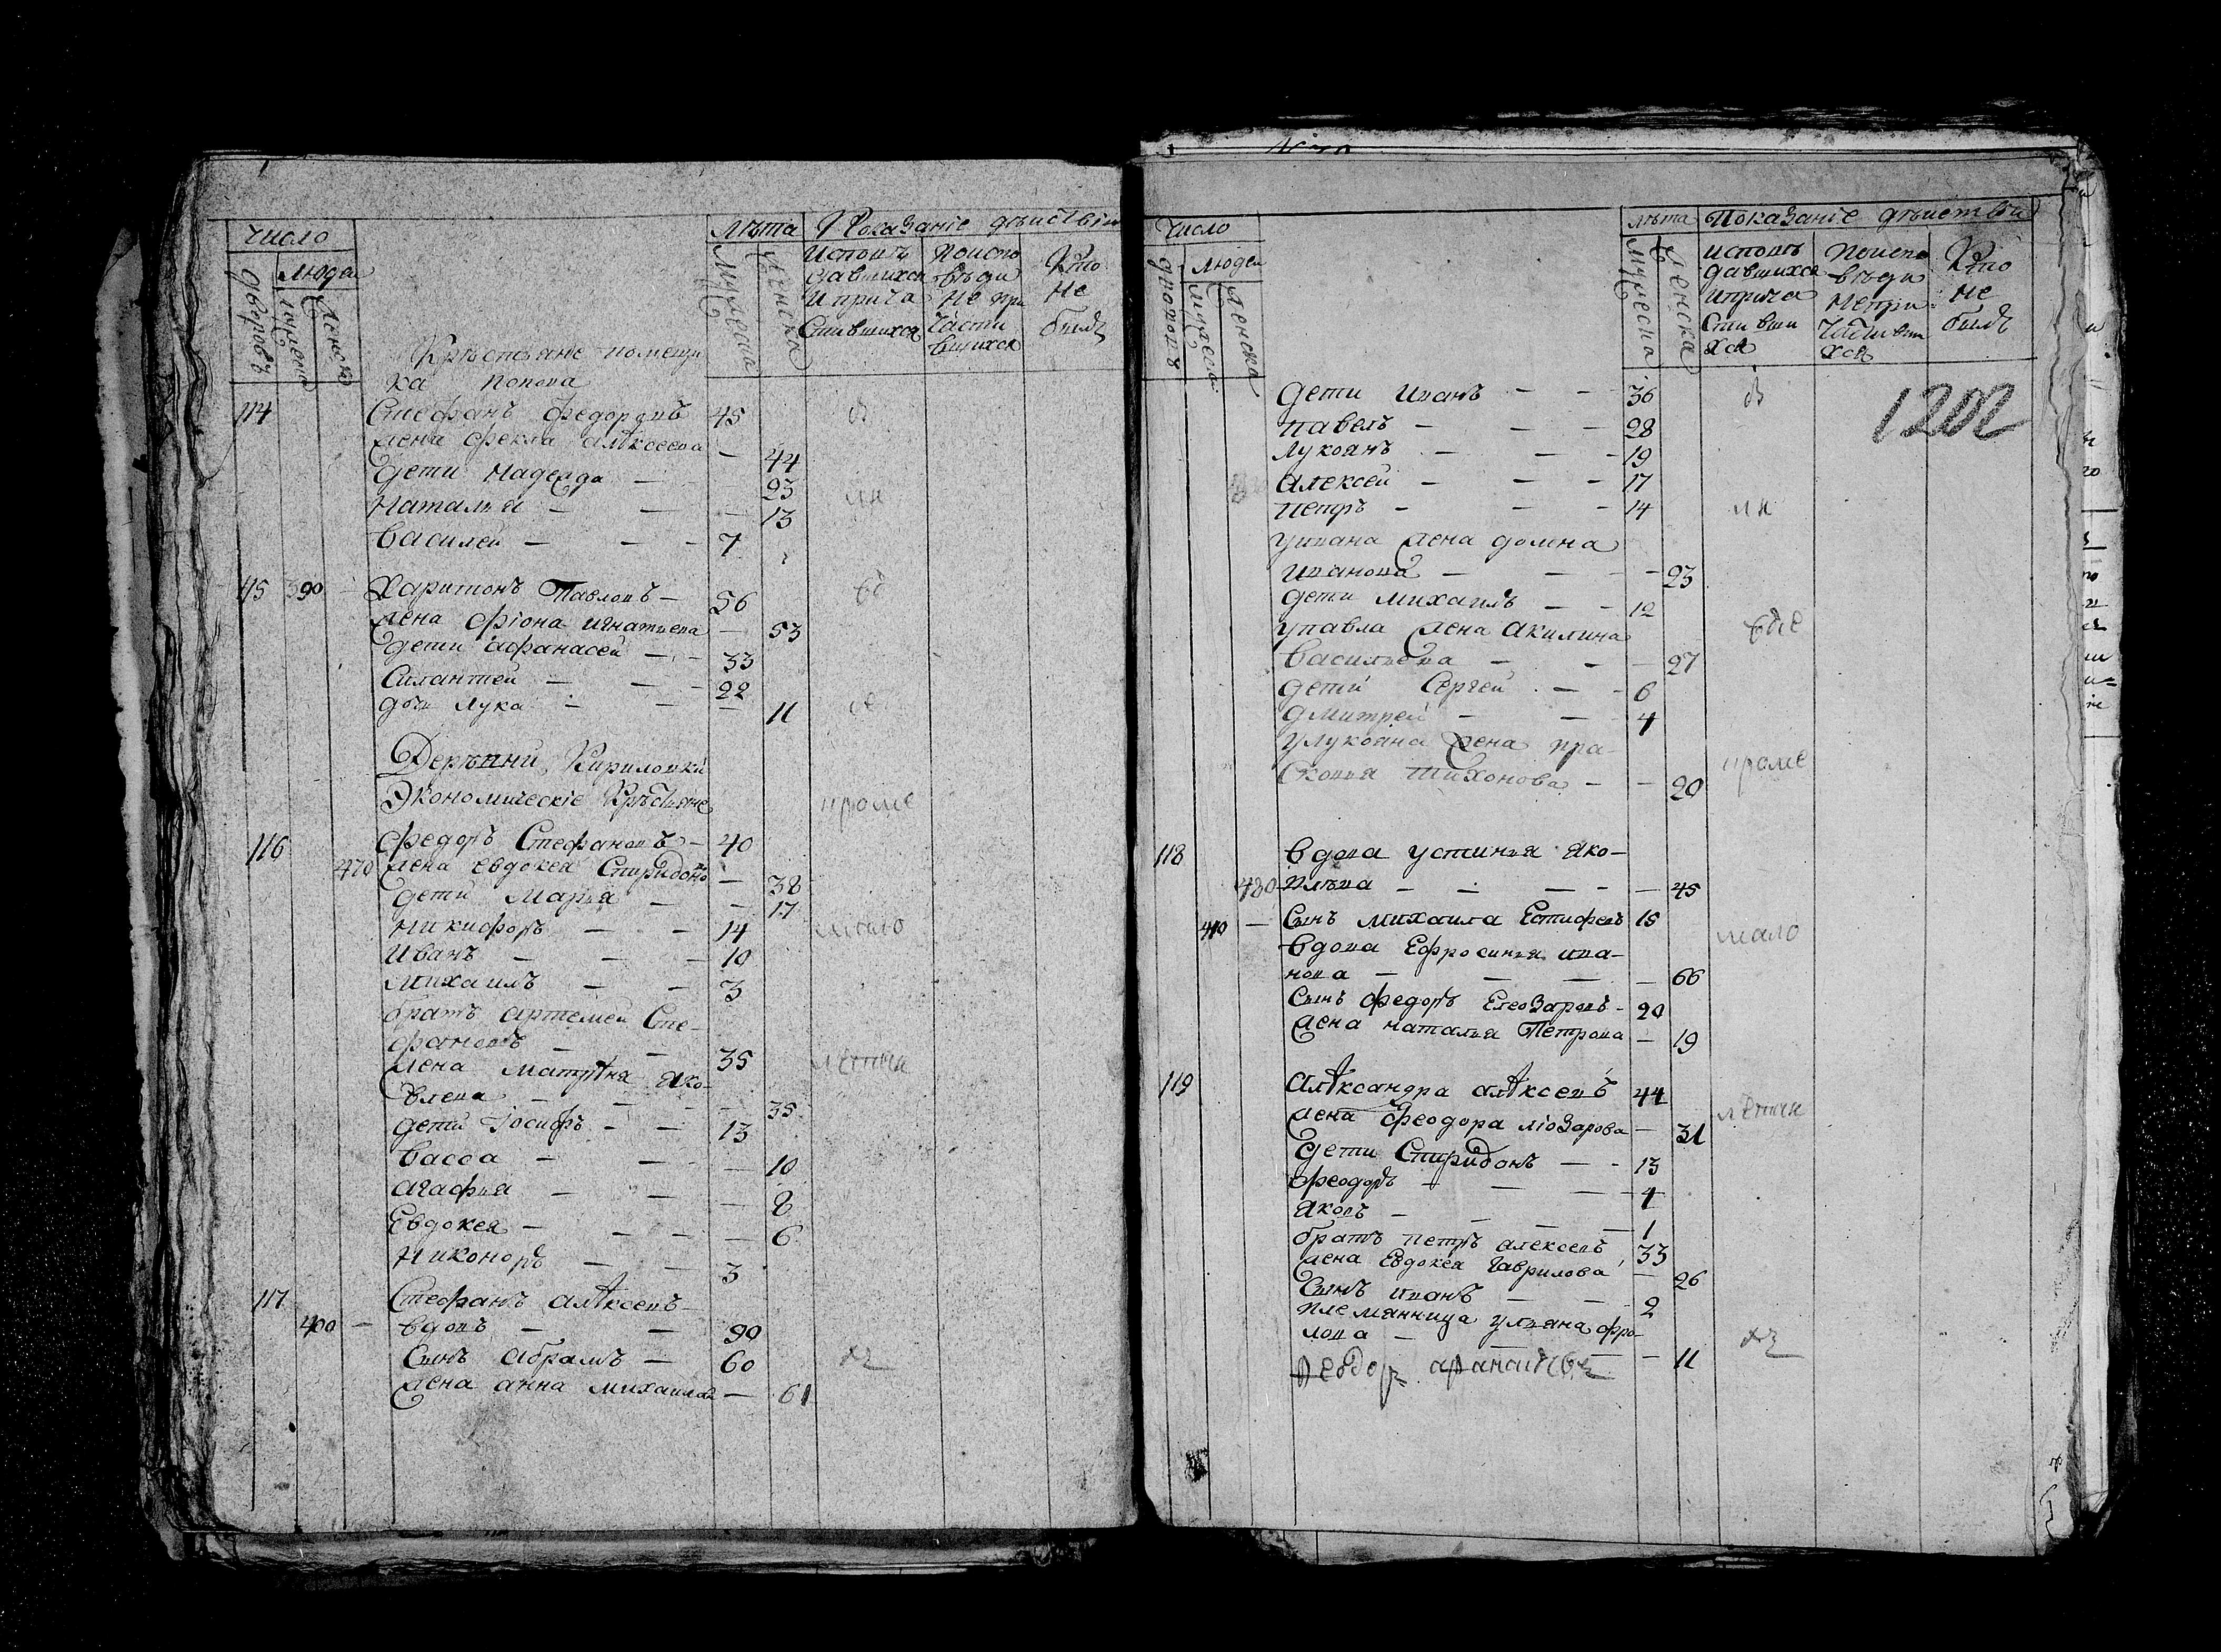 Число
Людеи
дворовъ
мужеска
женска
Лѣта
Показаніе дѣиствїи
мужеска
женска
Исповѣ
давшихся
и прича
стившихся
По испо
вѣди
не при
части
вшихся
Кто
не
былъ
Крѣстьяне помещи
ка Попова
114 Стефанъ Федоровъ 45
жена Фекла Алѣксеева — 44
дети Надежда — 23
Наталья — — — 13
Василей — — — 7
115 390 Харитонъ Павловъ — 56
жена Фіона Игнатиева — 53
дети Афанасей — — 33
Силантей — — — 22
дочь Лука — — — 11
Деревни Кириловки
Экономическіе Крѣстьяне
116 Федоръ Стефановъ — 40
470 жена Евдокея Спиридоно — 38
дети Марья — — 17
Никифоръ — — 14
Иванъ — — — 10
Михаилъ — — 3
братъ Артемеи Сте-
фановъ — — 35
жена Матрѣна Яко-
влева — — — — 35
дети Іосифъ — — 13
Васса — — — 10
Агафья — — — 8
Евдокея — — — — 6
Никоноръ — — 3
117 Стефанъ Алѣксеевъ
400 — вдовъ — — 90
Сынъ Абрамъ — 60
жена Анна Михаилова — 61
Ѳ
ми
се
проме
мало
лѣтни
Число
Людеи
мужеска
женска
Лѣта
Показаніе дѣиствїи
мужеска
женска
Исповѣ
давшихся
и прича
стивши
хся
По испо
вѣди
не при
частивши
хся
Кто
не
былъ
1202
дети Иванъ — — 36
Павелъ — — — 28
Лукоянъ — — — 19
Алексей — — — 17
Петръ — — — 14
у Ивана жена Домна
Иванова — — — 23
дети Михаилъ — — 12
у Павла жена Акилина
Васильева — — — 27
дети Сергей — — 6
Дмитрей — — 4
у Лукояна жена Пра-
сковья Тихонова — — 20
118 вдова Устинья Яко-
480 влева — — — — — 45
410 — Сынъ Михаила Естифеевъ 15
вдова Ефросинья Ива-
нова — — — — 66
Сынъ Федоръ Елеозаровъ — 20
жена Наталья Петрова — 19
119 Алѣксандра Алѣксеевъ 44
жена Феодора Лиозарова — 31
дети Спиридонъ — — 13
Феодоръ — — — 4
Яковъ — — — — 1
братъ Петръ Алексеевъ 33
жена Евдокея Гаврилова — 26
Сынъ Иванъ — — 2
племянница Ульяна Фро-
лова — — — 11
Ѳеодоръ Афанасьевъ
ми
проме
мало
лѣтни